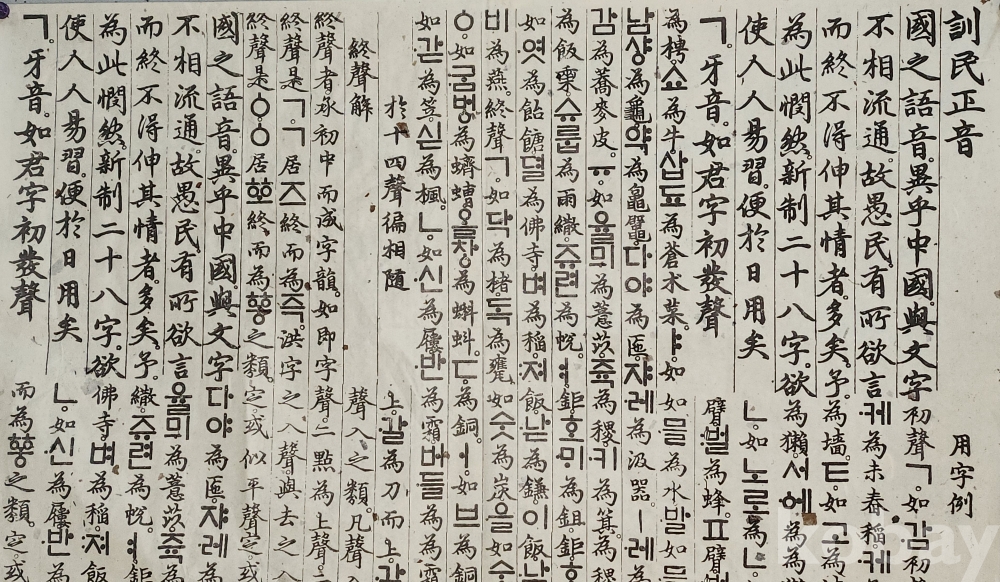 訓民正音 用字例
國之語音。異乎中國。與文字初聲ㄱ。如감初
不相流通。故愚民。有所欲言케為未舂稻。케
而終不得伸其情者。多矣。予為墻。ㅌ。如고
為此憫然。新制二十八字。欲為獺。서에為
使人人易習。便於日用矣 ㄴ。如노로為ㄴ
ㄱ。牙音。如君字初發聲 臂。벌為蜂。ㅍ臂
為쇼為牛。삽됴為蒼朮菜。ㅑ。如믈為水발如믈
남샹為龜약為다야為匜쟈레為汲器ㅣ레
감為蕎麥皮。ㅠ。如율믜為薏苡쥭為稷。키為箕為稷
為飯슈룹為雨繖쥬련為帨。ㅕ鉅호미為鉏鉅호
如엿為飴餹뎔為佛寺。벼為稻져飯낟為鎌이飯낟
비為燕。終聲ㄱ。如닥為楮。독為甕。如숫為炭을如
ㆁ。如굼벙為蠐螬올창為蝌蚪。ㄷ。為銅。ㅓ。如브為銅
如갇為笠。싣為楓。ㄴ。如신為屨반為霜버들為
於十四聲徧相隨 上갈為刀而上
終聲解 聲入之類。凡聲
終聲者承初中而成字韻。如即字聲。二點為上聲
終聲是ㄱㄱ居즈終而為즉洪字之入聲。與去之入
終聲是ㆁㆁ居ᅘᅩ終而為ᅘᅩᆼ之類。定。或似平聲。定。或
國之語音。異乎中國。與文字다야為匜쟈레
不相流通。故愚民。有所欲言율믜為薏苡쥭為
而終不得伸其情者。多矣。予繖쥬련為帨。鉅
為此憫然。新制二十八字。欲佛寺벼為稻져飯
使人人易習。便於日用矣 ㄴ。如신為屨반為
ㄱ。牙音。如君字初發聲 而為ᅘᅩᆼ之類。定。或